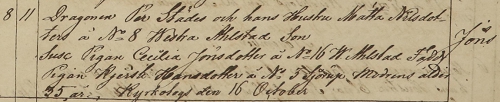 8 11 Dragonen Per Städes och hans Hustru Mätta Nilsdot-
ters å No 8 Westra Ahlstad Son Jöns
Susc. Pigan Cecilia Jönsdotter å No 16 W Ahlstad Fadd:
Pigan Kjersti Hansdotter å No 5 Modrens ålder
35 år. Kyrkotogs den 16 October